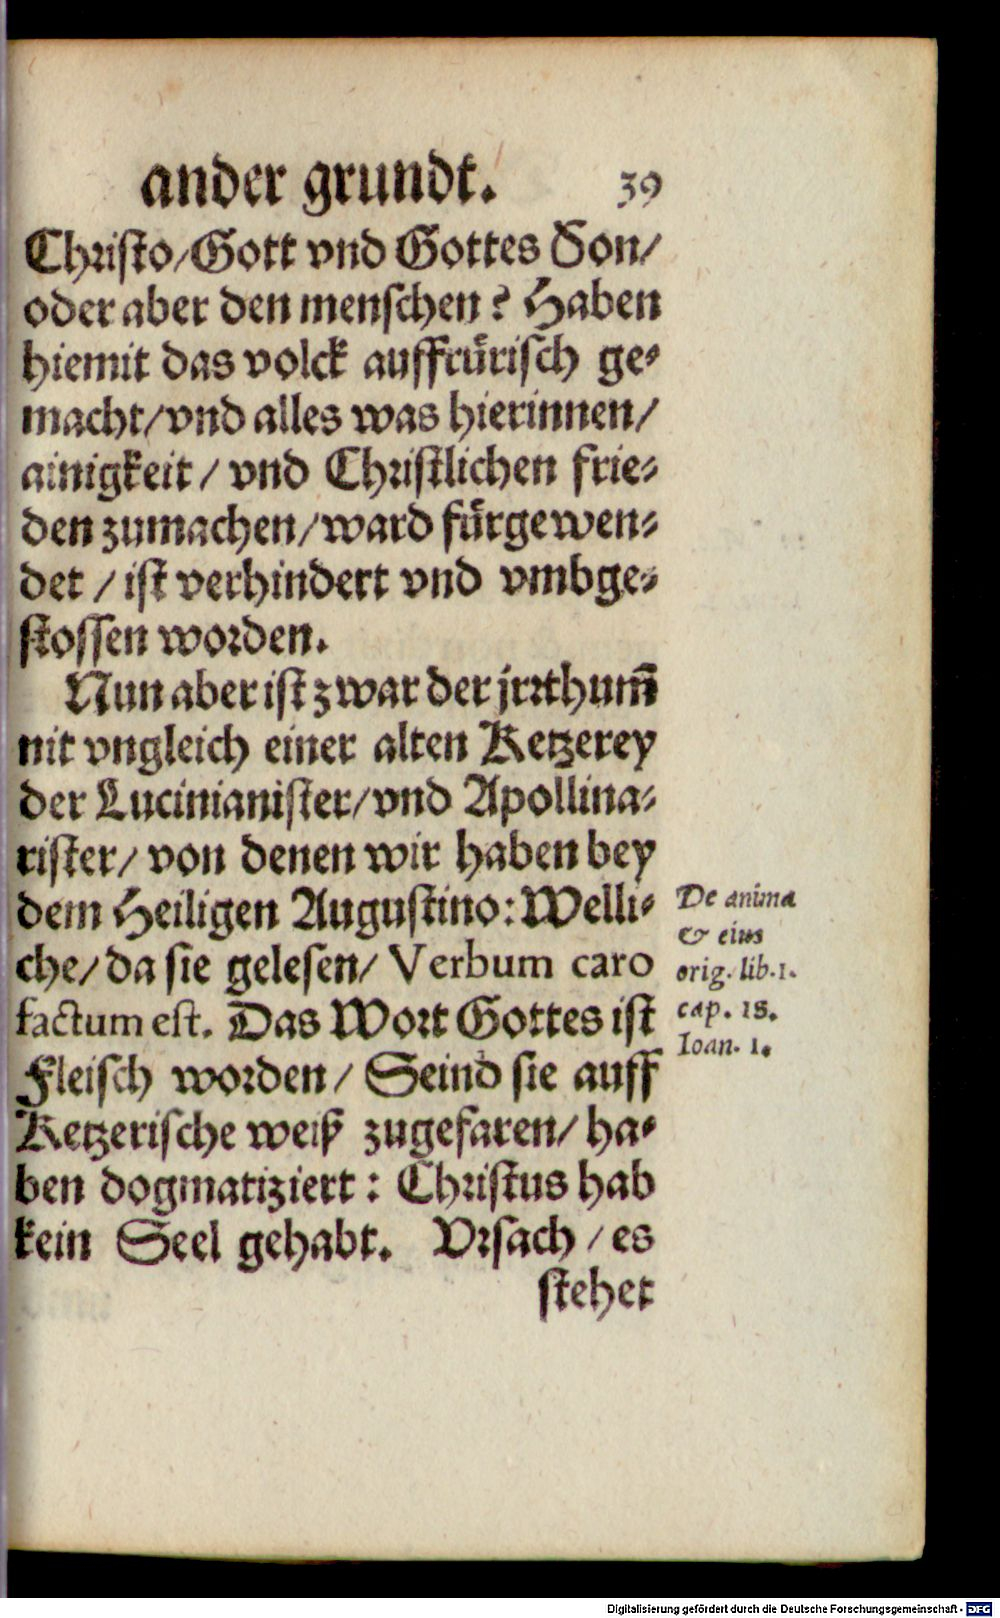 ander grundt. 39
Christo/Gott vnd Gottes Son/
oder aber den menschen? Haben
hiemit das volck auffrürisch ge-
macht/vnd alles was hierinnen/
ainigkeit / vnd Christlichen frie-
den zumachen/ward fürgewen-
det / ist verhindert vnd vmbge-
stossen worden.
Nun aber ist zwar der jrrthum̃
nit vngleich einer alten Ketzerey
der Lucinianister/vnd Apollina-
rister/ von denen wir haben bey
dem Heiligen Augustino: Welli-
che/ da sie gelesen/ Verbum caro
factum est. Das Wort Gottes ist
Fleisch worden/ Seind sie auff
Ketzerische weiß zugefaren/ ha-
ben dogmatiziert: Christus hab
kein Seel gehabt. Vrsach / es
stehet
De anima
& eius
orig. lib.1.
cap. 18.
Ioan. 1.
Digitalisierung gefördert durch die Deutsche Forschungsgemeinschaft - DFG